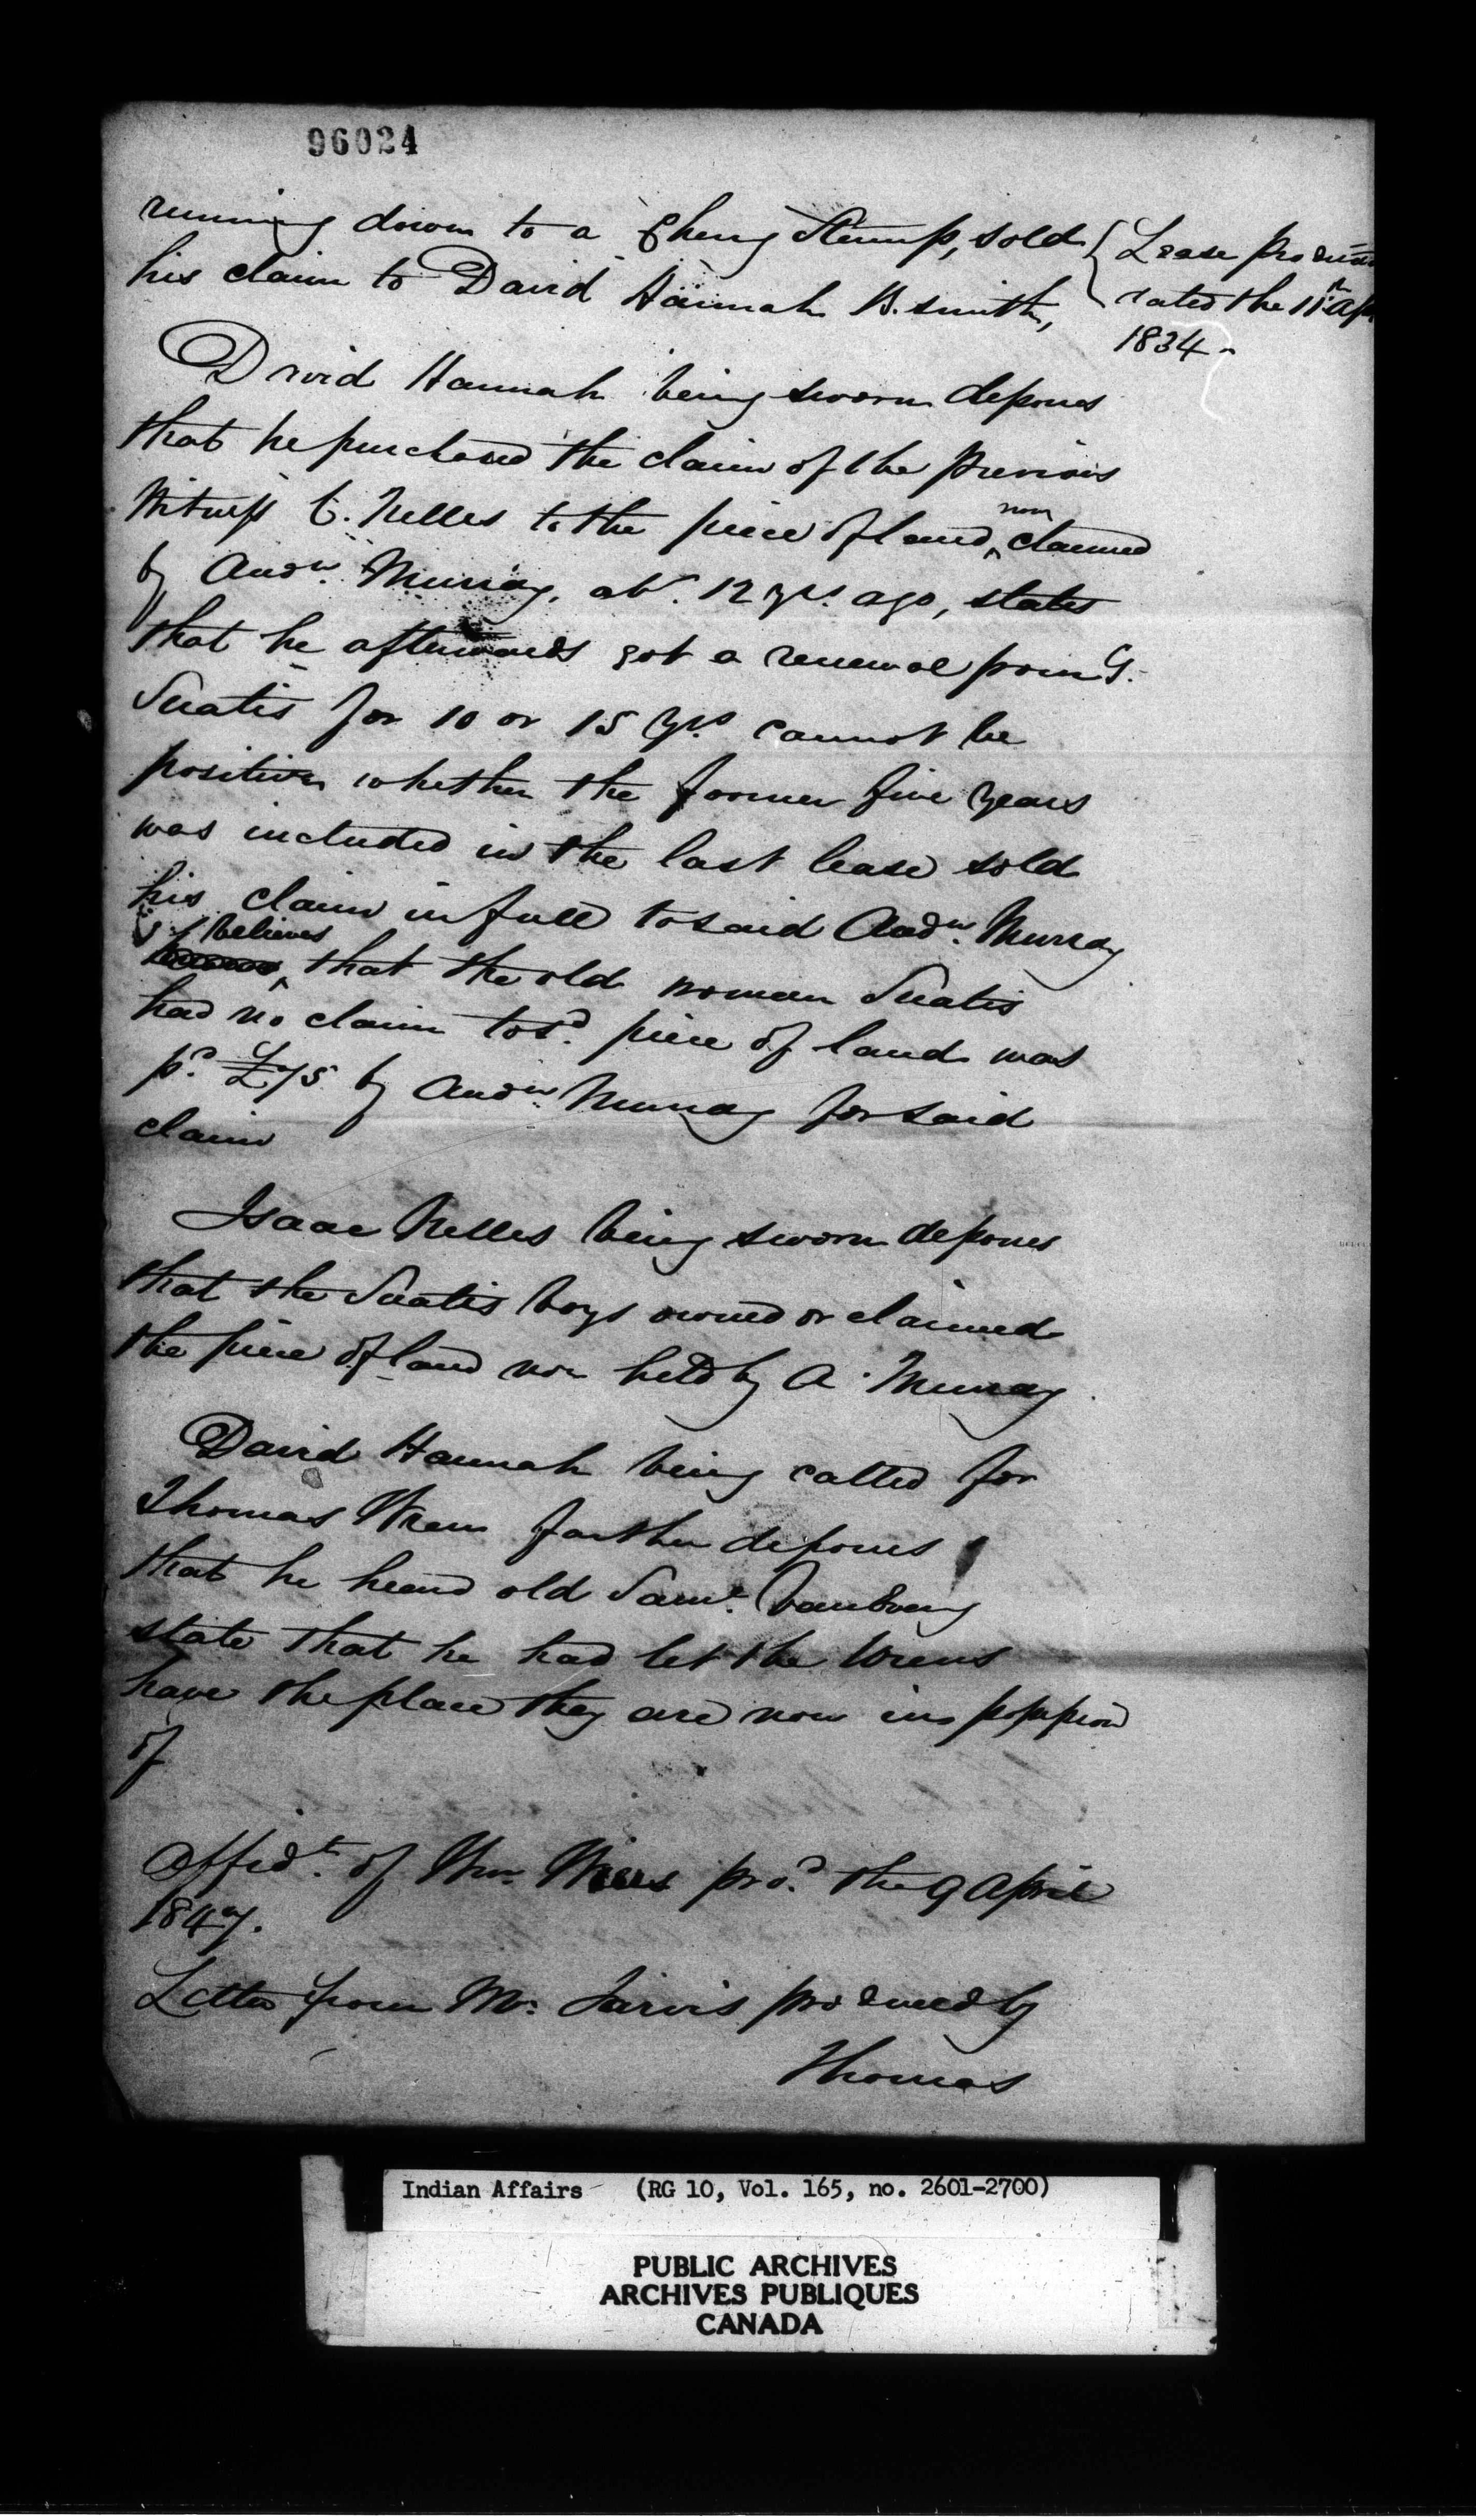 96024
running down to a Cherry Stump, sold
his claim to David Hannah B. smith,
{ Lease produced
dated the 11th Apr
1834
David Hannah being sworn depones
that he purchased the claim of the previous
Witness C. Nelles to the piece of land now claimed
by Andw. Murray, abt. 12 yrs. ago, states
that he afterwards got a renewal from G.
Suatis for 10 or 15 yrs cannot be
positive whether the former five years
was included in the last lease sold
his claim in full to said Andw. Murray
believes
that the old woman Suatis
had no claim to sd. piece of land was
pd. £75 by Andw. Murray for said
claim
Isaac Nelles being sworn depones
that the Suatis boys owned or claimed
the piece of land now held by A. Murray
David Hannah being called for
Thomas Wren farther depones
that he heard old Saml. Vanevery
state that he had let the Wrens
have the place they are now in possession
of
Affidt. of Wm. Wrens prod. the 9 April
1847.
Letter from Mr. Jarvis produced by
Thomas
Indian Affairs (RG 10, Vol. 165, no. 2601-2700)
PUBLIC ARCHIVES
ARCHIVES PUBLIQUES
CANADA